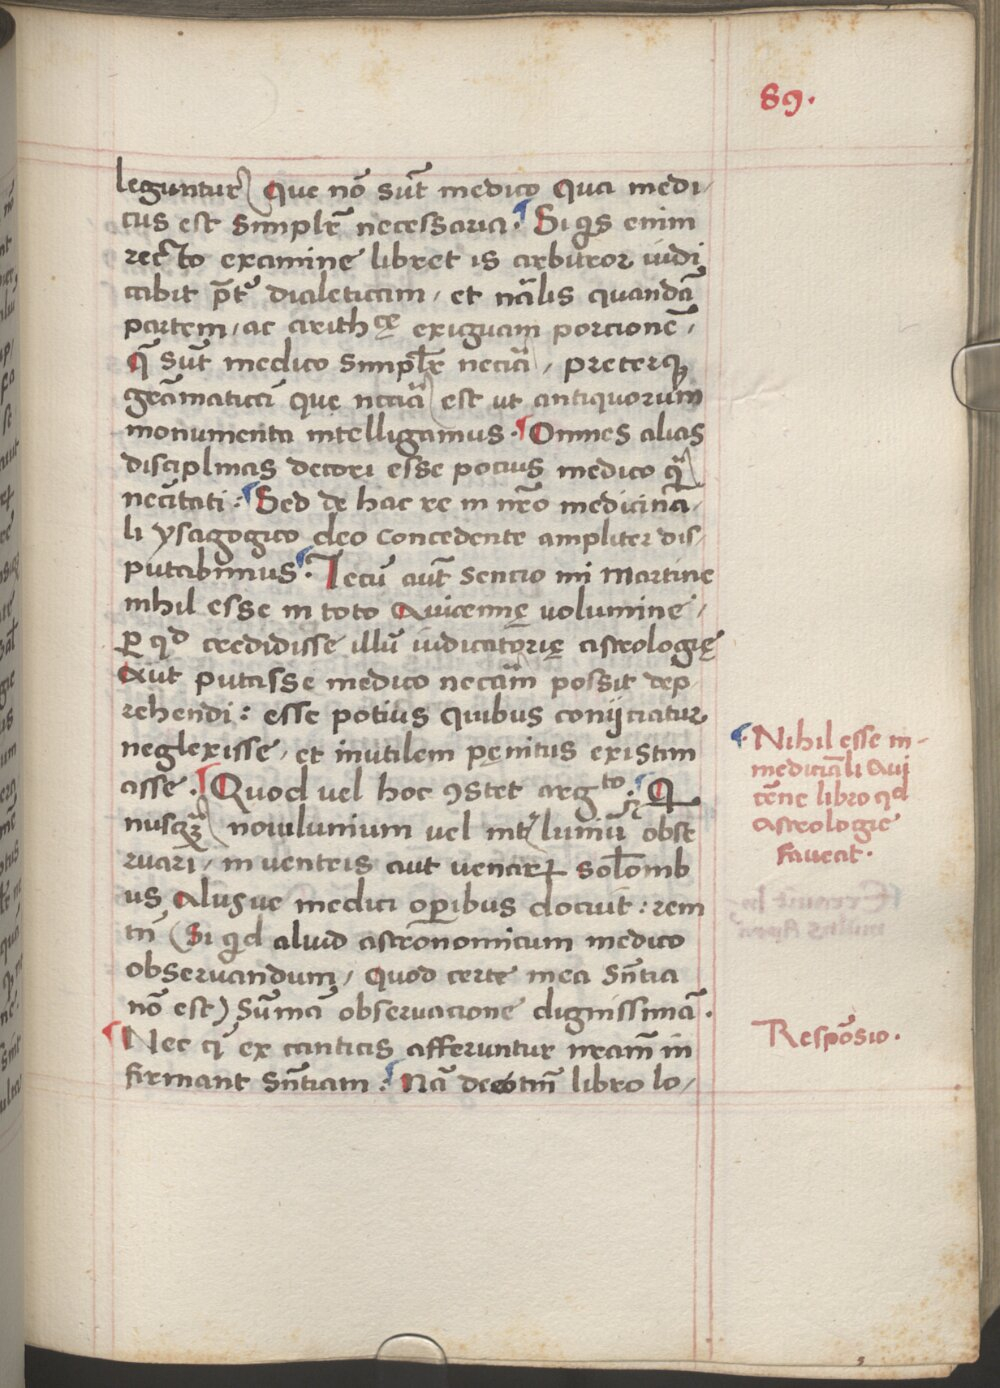 89.
leguntur) Que nō sūt medico Qua medi/
cus est simplr̄ necessaria. Si q̄s enim
rectͦ to examine libret is arbitror iudi
cabit p̄tꝰ dialeticam, et nālis quandā
partem, ac arithcę exiguam porcionē,
q̄ sūt medico simplr̄ nēciā, preterq̄
grāmaticā que nēciā est ut antiquorum
monumenta intelligamus. Omnes alias
disciplinas decori esse pocius medico q̄
necītati: Sed de hac re in nr̄o medicinā/
li ysagogico deo concedente ampliter dis/
putabimus. Tecū aūt sencio mi Martine
nihil esse in toto Auicennę volumine,
ꝑ qd credidisse illū iudicatorię astrologię
Aut putasse medico necām possit dep/
rehendi: esse potius quibus conijciatur
neglexisse, et inutilem pęnitus existim
asse. Quod vel hoc ꝯstet argto: Q
nusq̄ nouilunium vel intꝰluniū obse
ruari, in ventris aut venarꝝ solōmb
us Alijsue medici oꝑibus docuit: rem
tn̄ (Si q̄d aliud astronomicum medico
obseruandum, Quod certe mea sn̄tia
nō est) Sūmā obseruacione dignissimā.
Nec q̄ ex canticis afferuntur nr̄am in
firmant sn̄tiam: Nā de eotm̄ libro lo/
Nihil esse in-
mediciāli Aui
cēne libro qd
Astrologie
faueat.
Respōsio.